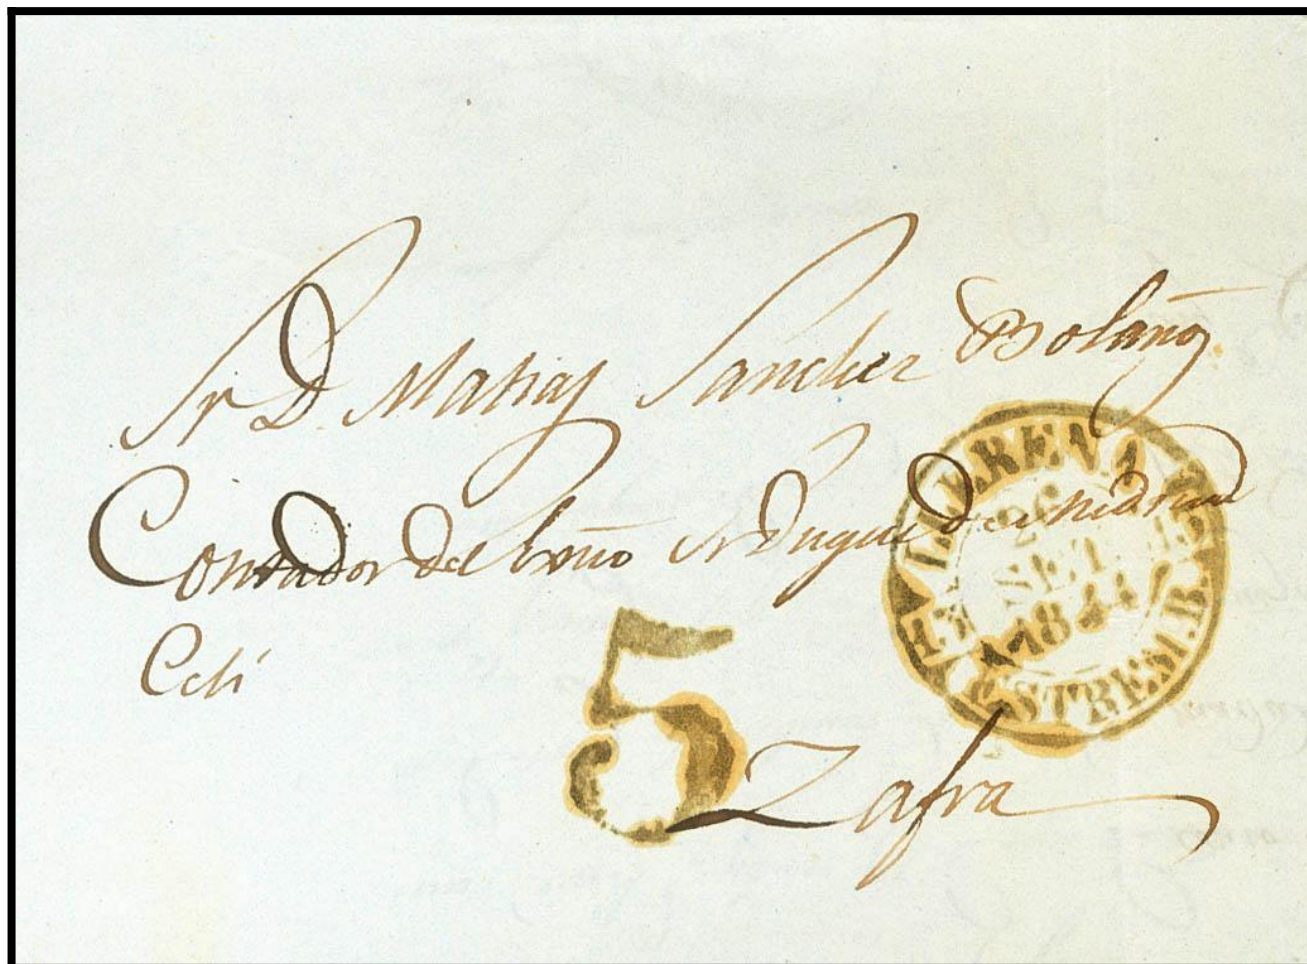 Sr D Matias Sanchez Bolaños
Contador del Exmo Sr Duque de Medina
Celi
5
Zafra
LLERENA
26
SET
1844
ESTREM. B.